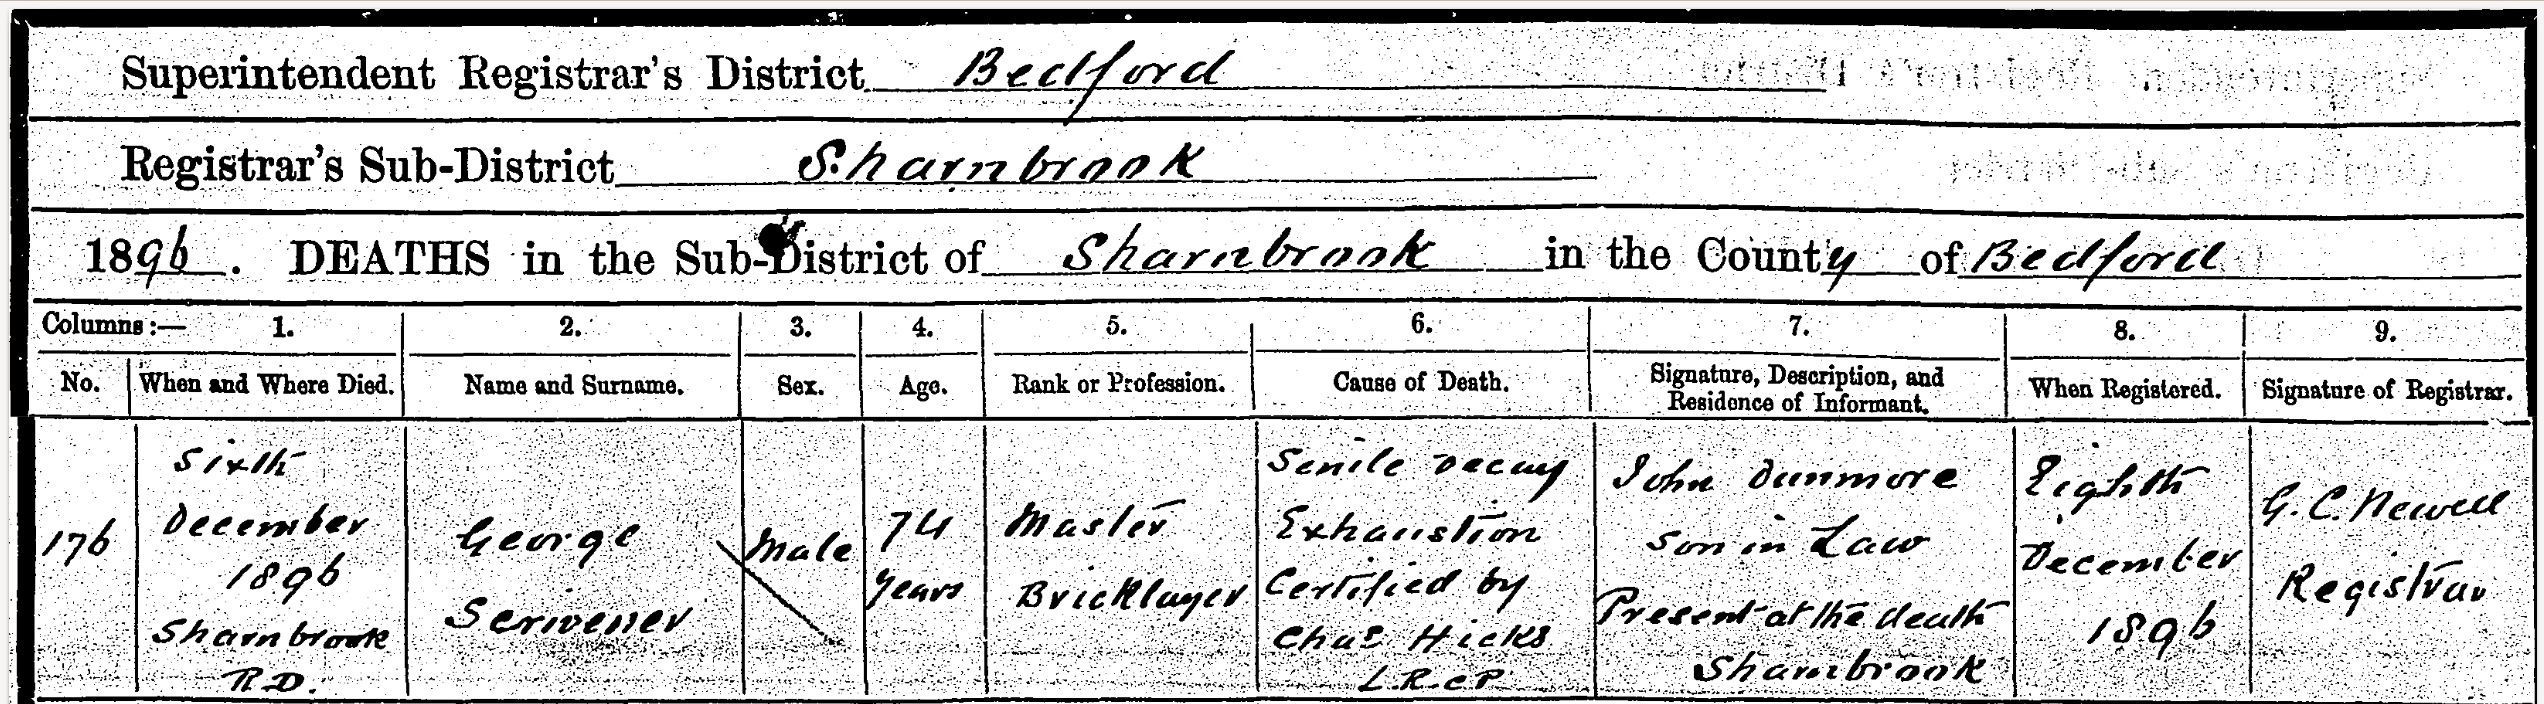 Superintendent Registrar's District Bedford
Registrar's Sub-District Sharnbrook
1896. DEATHS in the Sub-District of Sharnbrook in the County of Bedford
Columns:— 1. 2. 3. 4. 5. 6. 7. 8. 9.
No. When and Where Died. Name and Surname. Sex. Age. Rank or Profession. Cause of Death. Signature, Description, and Residence of Informant. When Registered. Signature of Registrar.
176
Sixth
December
1896
Sharnbrook
R.D.
George
Scrivener
Male
74
years
Master
Bricklayer
Senile Decay
Exhaustion
Certified by
Chas Hicks
L.R.C.P.
John Dunmore
Son in Law
Present at the death
Sharnbrook
Eighth
December
1896
G. C. Newell
Registrar